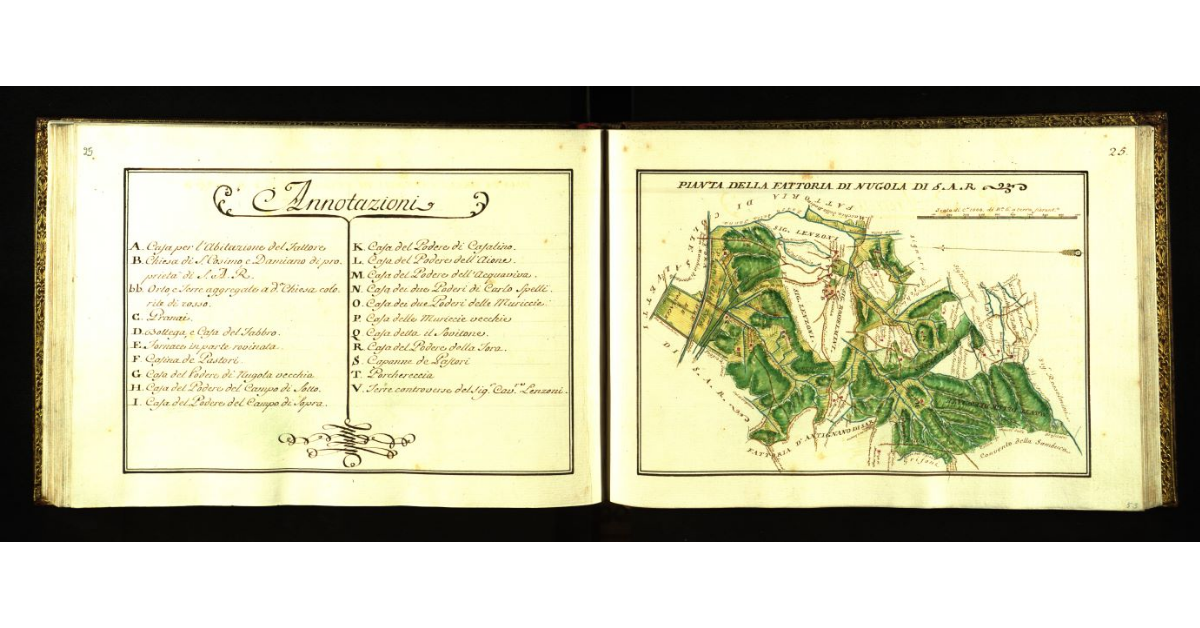 25
Annotazioni
A. Casa per l'Abitazione del Fattore
B. Chiesa di S. Cosimo, e Damiano di pro
prietà di S. A. R.
bb. Orto e Terre aggregate a d.ª Chiesa colo
rite di rosso.
C. Granai.
D. Bottega, e Casa del Fabbro.
E. Fornace in parte rovinata.
F Casina de Pastori.
G Casa del Podere di Nugola vecchia
H. Casa del Podere del Campo di Sotto.
I. Casa del Podere del Campo di Sopra.
K. Casa del Podere di Casalino.
L. Casa del Podere dell'Aione.
M. Casa del Podere dell'Acquaviva.
N. Casa dei due Poderi di Carlo Spelli.
O. Casa dei due Poderi delle Muriccie
P. Casa delle Muriccie vecchie
Q Casa detta il
R. Casa del Podere della
S. Capanne de Pastori
T. Porchereccia
V. Terre controverse del Sig.r Cav.re Lenzoni.
25.
PIANTA DELLA FATTORIA DI NUGOLA DI S. A. R
FATTORIA DI COLLE SALVETTI
DI S. A. R.
SIG. LENZONI
SIG. LENZONI
FATTORIA D'ANTIGNANO DI S.A.R.
Convento della Sambuca